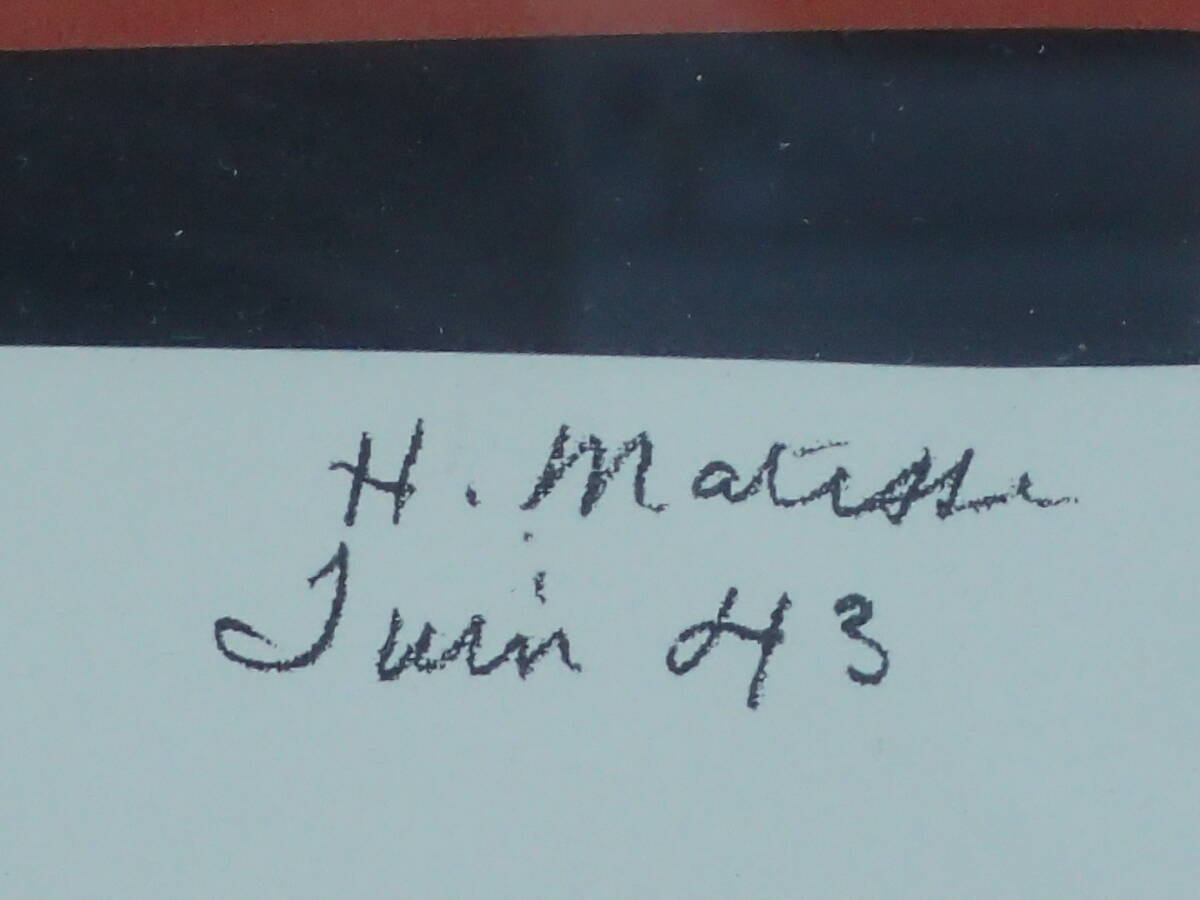 H. Matisse
Juin 43